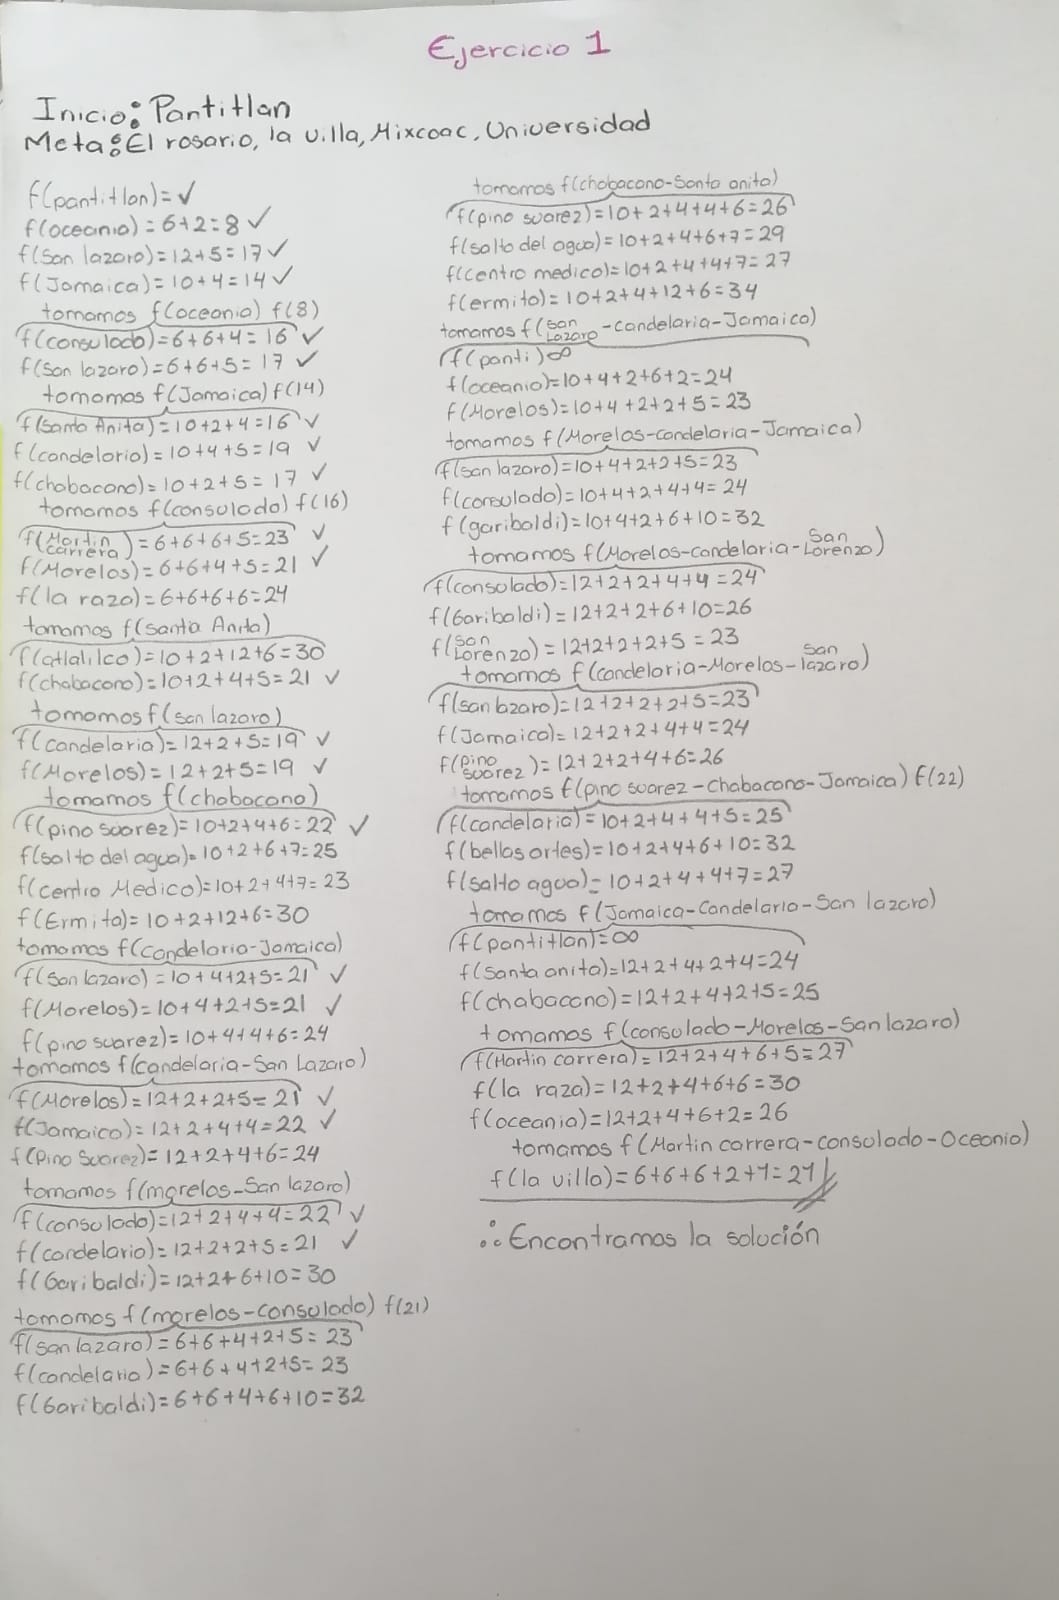 Ejercicio 1
Inicio: Pantitlan
Meta: El rosario, la villa, Mixcoac, Universidad
f(pantitlan)=✓
f(oceania)=6+2=8 ✓
f(San lazaro)=12+5=17 ✓
f(Jamaica)=10+4=14 ✓
tomamos f(oceania) f(8)
f(consulado)=6+6+4=16 ✓
f(San lazaro)=6+6+5=17 ✓
tomamos f(Jamaica) f(14)
f(Santa Anita)=10+2+4=16 ✓
f(candelaria)=10+4+5=19 ✓
f(chabacano)=10+2+5=17 ✓
tomamos f(consulado) f(16)
f(Martin carrera)=6+6+6+5=23 ✓
f(Morelos)=6+6+4+5=21 ✓
f(la raza)=6+6+6+6=24
tomamos f(santa Anita)
f(atlalilco)=10+2+12+6=30
f(chabacano)=10+2+4+5=21 ✓
tomamos f(san lazaro)
f(candelaria)=12+2+5=19 ✓
f(Morelos)=12+2+5=19 ✓
tomamos f(chabacano)
f(pino suarez)=10+2+4+6=22 ✓
f(salto del agua)=10+2+6+7=25
f(centro Medico)=10+2+4+7=23
f(Ermita)=10+2+12+6=30
tomamos f(candelaria-Jamaica)
f(San lazaro)=10+4+2+5=21 ✓
f(Morelos)=10+4+2+5=21 ✓
f(pino suarez)=10+4+4+6=24
tomamos f(candelaria-San Lazaro)
f(Morelos)=12+2+2+5=21 ✓
f(Jamaica)=12+2+4+4=22 ✓
f(Pino Suarez)=12+2+4+6=24
tomamos f(morelos-San lazaro)
f(consulado)=12+2+4+4=22 ✓
f(candelaria)=12+2+2+5=21 ✓
f(Garibaldi)=12+2+6+10=30
tomamos f(morelos-consulado) f(21)
f(san lazaro)=6+6+4+2+5=23
f(candelaria)=6+6+4+2+5=23
f(Garibaldi)=6+6+4+6+10=32
tomamos f(chabacano-Santa anita)
f(pino suarez)=10+2+4+4+6=26
f(salto del agua)=10+2+4+6+7=29
f(centro medico)=10+2+4+4+7=27
f(ermita)=10+2+4+12+6=34
tomamos f(san Lazaro-candelaria-Jamaica)
f(panti)∞
f(oceania)=10+4+2+6+2=24
f(Morelos)=10+4+2+2+5=23
tomamos f(Morelos-candelaria-Jamaica)
f(san lazaro)=10+4+2+2+5=23
f(consulado)=10+4+2+4+4=24
f(garibaldi)=10+4+2+6+10=32
tomamos f(Morelos-candelaria-San Lorenzo)
f(consulado)=12+2+2+4+4=24
f(Garibaldi)=12+2+2+6+10=26
f(san Lorenzo)=12+2+2+2+5=23
tomamos f(candelaria-Morelos-San lazaro)
f(san lazaro)=12+2+2+2+5=23
f(Jamaica)=12+2+2+4+4=24
f(pino suarez)=12+2+2+4+6=26
tomamos f(pino suarez-Chabacano-Jamaica) f(22)
f(candelaria)=10+2+4+4+5=25
f(bellas artes)=10+2+4+6+10=32
f(salto agua)=10+2+4+4+7=27
tomamos f(Jamaica-Candelaria-San lazaro)
f(pantitlan)=∞
f(santa anita)=12+2+4+2+4=24
f(chabacano)=12+2+4+2+5=25
tomamos f(consulado-Morelos-San lazaro)
f(Martin carrera)=12+2+4+6+5=27
f(la raza)=12+2+4+6+6=30
f(oceania)=12+2+4+6+2=26
tomamos f(Martin carrera-consulado-Oceania)
f(la villa)=6+6+6+2+1=21
∴ Encontramos la solución